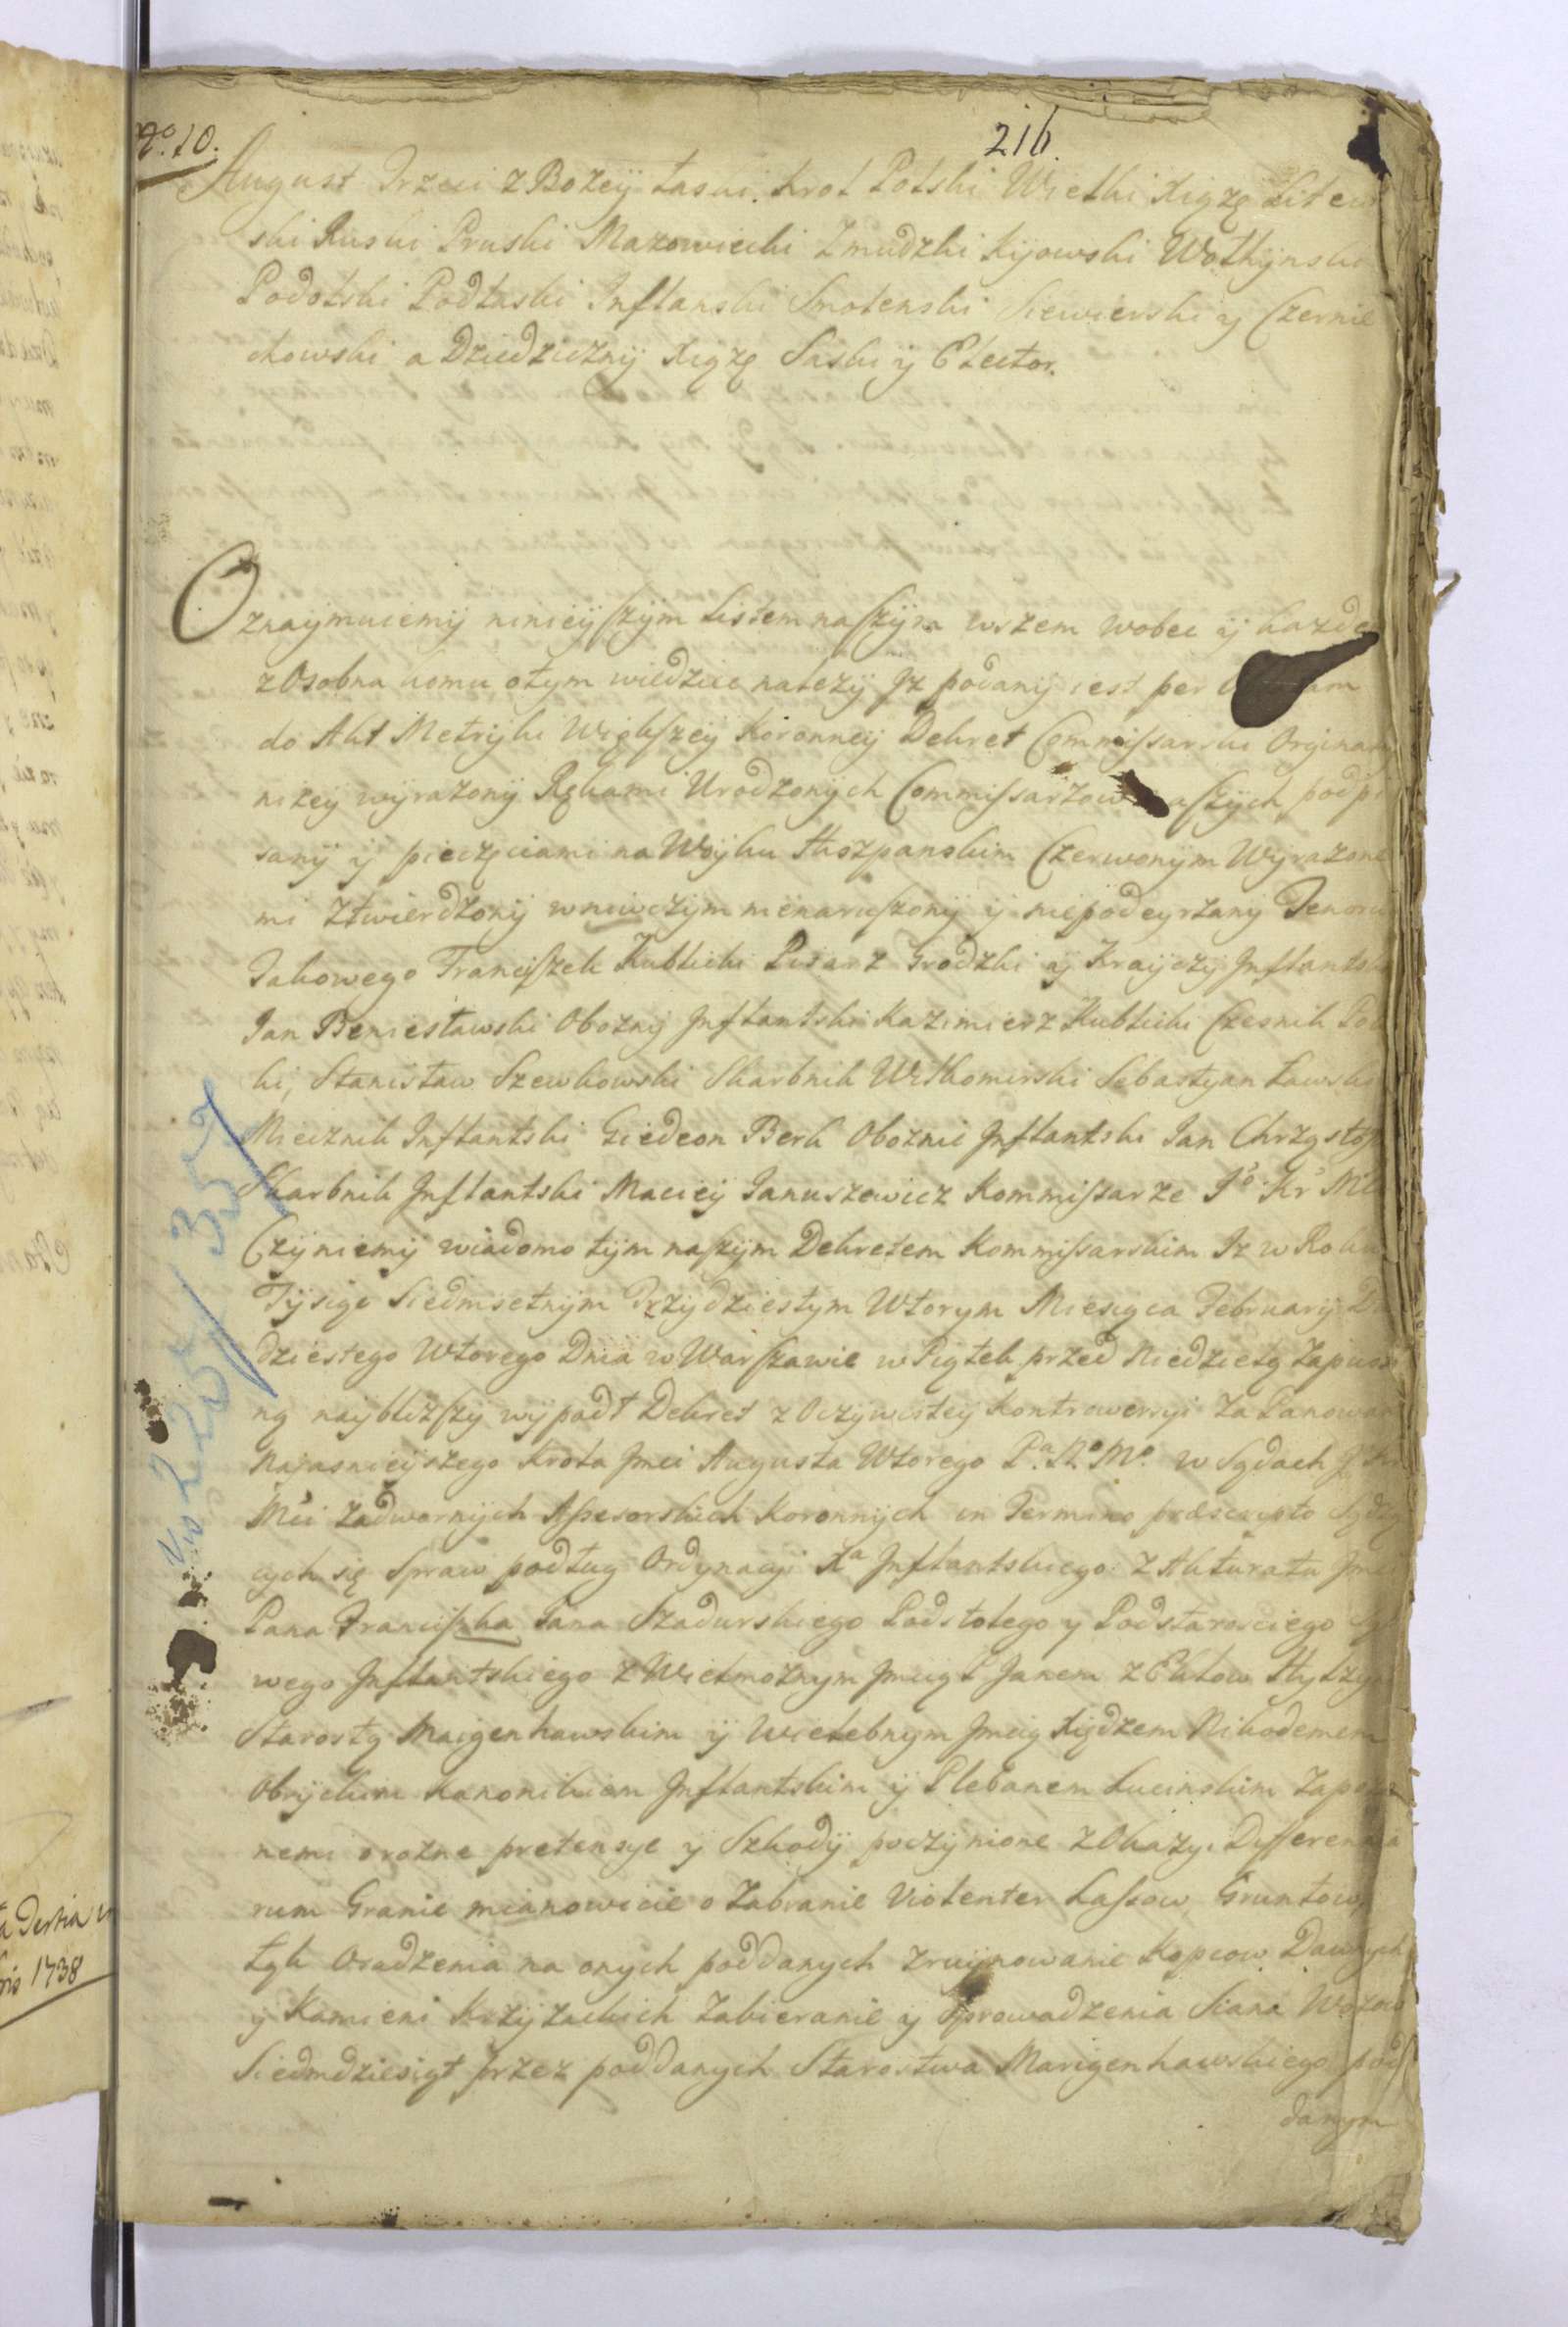 No. 10.
216.
August Trzeci z Bożey łaski Krol Polski Wielki Xiąże Litew
ski Ruski Pruski Mazowiecki Zmudzki Kijowski Wołhynski
Podolski Podlaski Inflanski Smolenski Siewierski y Czernie
chowski a Dziedziczny Xiąże Saski y Elector.
Oznaymuiemy ninieyszym Listem naszym wszem wobec y każde
z Osobna komu o tym wiedziec należy Iz podany iest per
do Akt Metryki Większey Koronney Dekret Commissarski Orginal
niżey wyrażony Rękami Urodzonych Commissarzow podpi
sany y pieczęciami na Woyku Hiszpanskim Czerwonym Wyrażone
mi Ztwierdzony wniwczym nienaruszony y niepodeyrzany Tenoru
Takowego Franciszek Kublicki Pisarz Grodzki y Krayczy Inflantski
Jan Beniesławski Obozny Inflantski Kazimierz Kublicki Czesnik
ki, Stanisław Szewkowski Skarbnik Wilkomirski Sebastyan Ławski
Miecznik Inflantski Giedeon Berk Oboznic Inflantski Jan Chrzysto
Skarbnik Inflantski Maciey Januszewicz Kommissarze Jo Kr Mci
Czyniemy wiadomo tym naszym Dekretem Kommissarskim Iz w Roku
Tysiąc Siedmsetnym Trzydziestym Wtorym Miesiąca February Dw
dziestego Wtorego Dnia w Warszawie w Piątek przed Niedzielą Zapust
ną naybliższy wypadł Dekret z Oczywistey Kontrowersyi Za Panowan
Najasnieyszego Krola Jmci Augusta Wtorego Pa. No. Mo. w Sądach Jo Kr
Mci Zadwornych Assesorskich Koronnych in Termino præscripto Sądzą
cych się Spraw podług Ordynacyi Xa Inflantskiego. Z Akturatu Jmci
Pana Franciszka Jana Szadurskiego Podstolego y Podstarosciego Są
wego Inflantskiego z Wielmożnym Jmcią P Janem z Ektow Hylzy
Starostą Maigenhawskim y Wielebnym Jmcią Xiędzem Nikodemem
Obryckim Kanonikiem Inflantskim y Plebanem Lucinskim Zapozw
nemi o rożne pretensye y Szkody poczynione z Okazyi Differencia
rum Granic mianowicie o Zabranie Violenter Lassow, Gruntow,
Łąk Osadzenia na onych poddanych Zruynowanie Kopcow Dawnych
y Kamieni Krzyżackich Zabieranie y Sprowadzenia Siana Wozow
Siedmdziesiąt przez poddanych Starostwa Marigenhawskiego pod
danym
Vo 235/ 352
a Tertia
ris 1738